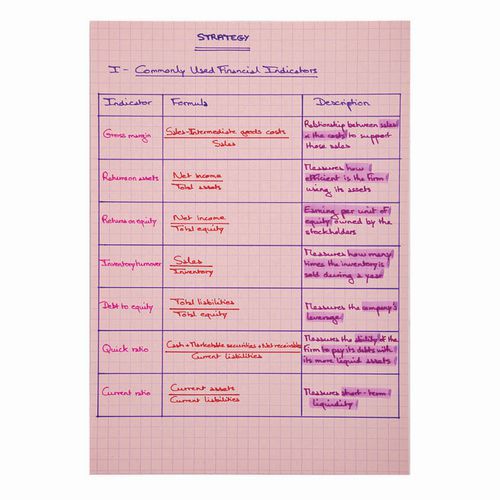 STRATEGY
I - Commonly Used Financial Indicators
Indicator
Formula
Description
Gross margin
Sales-Intermediate goods costs
Sales
Relationship between sales
& the costs to support
those sales
Return on assets
Net income
Total assets
Measures how
efficient is the firm
using its assets
Return on equity
Net income
Total equity
Earning per unit of
equity owned by the
stockholders
Inventory turnover
Sales
Inventory
Measures how many
times the inventory is
sold during a year
Debt to equity
Total liabilities
Total equity
Measures the company's
leverage
Quick ratio
Cash + Marketable securities + Net receivables
Current liabilities
Measures the ability of the
firm to pay its debts with
its more liquid assets
Current ratio
Current assets
Current liabilities
Measures short-term
liquidity